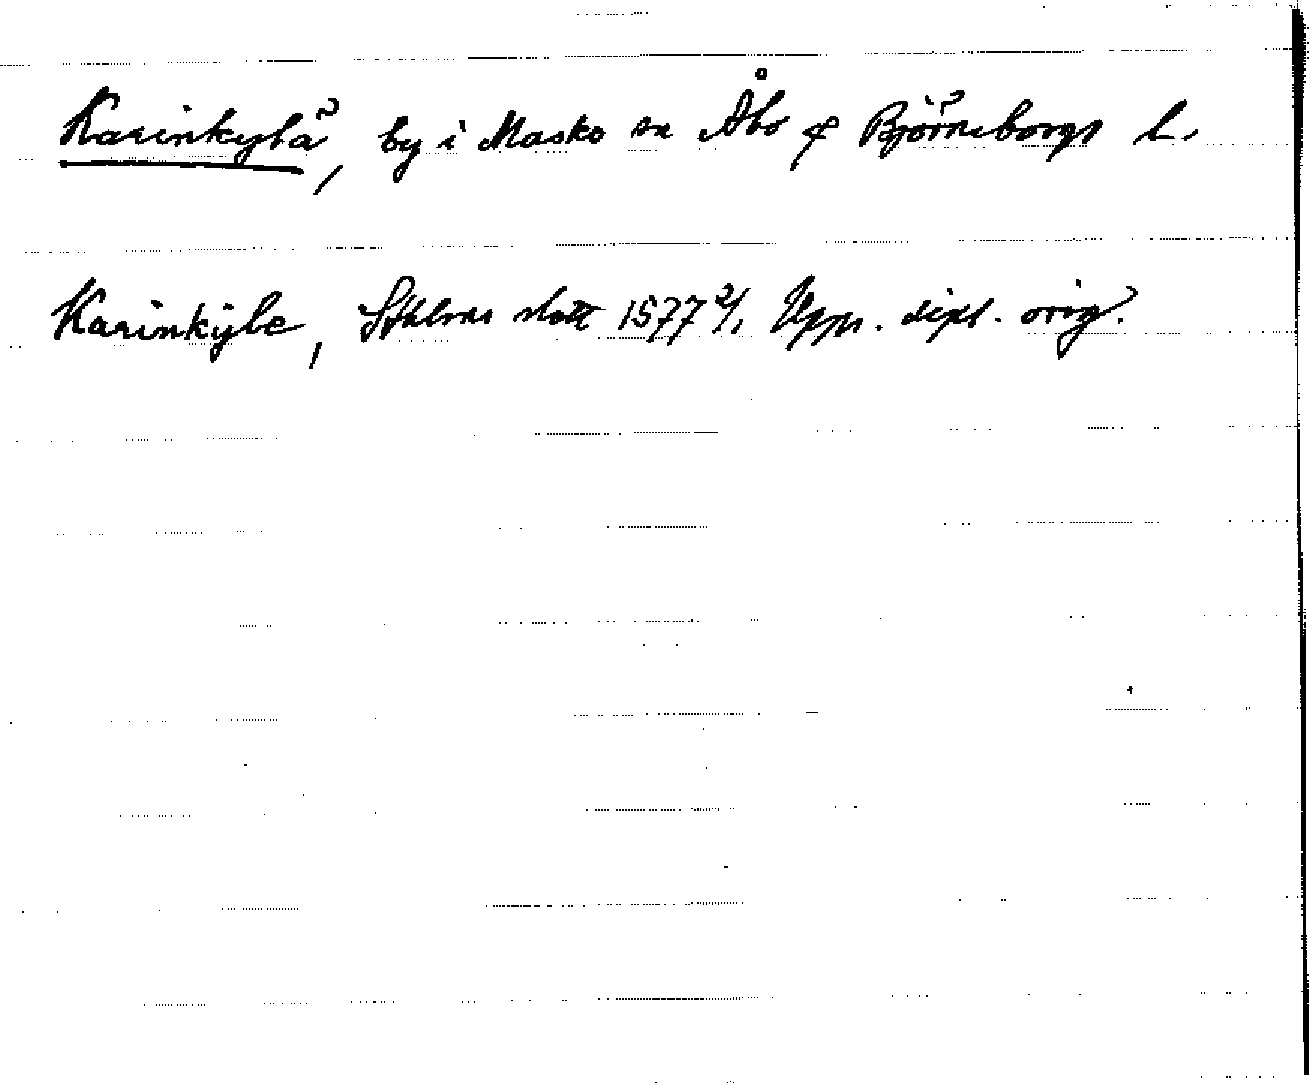 Karinkylä, by i Masko sn Åbo & Björneborgs l.
Karinkÿle, Sthlms slott 1577 2/1 Upps. dipl. orig.